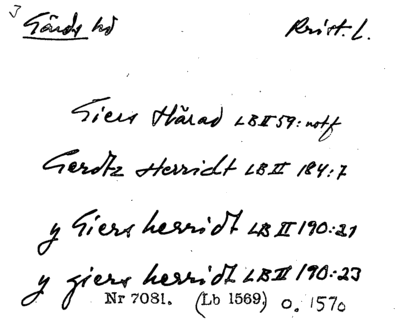 Gärds hd Krist. L.
Giers Härad LB II 59: not f
Gerdtz Herridt LB II 184:7
y Giers herridt LB II 190:21
y giers herridt LB II 190:23
Nr 7081. (Lb 1569) o. 1570